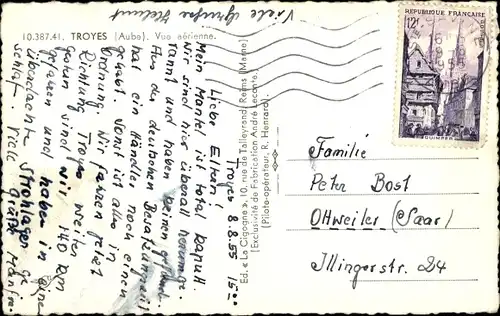 Viele Grüße Helmut
10.387.41. TROYES (Aube). Vue aérienne.
Troyes 8.8.55 15.00
Liebe Eltern!
Mein Mantel ist total kaputt
Wir sind hier überall herumge-
rannt und haben keinen
Aus der deutschen
hat ein Händler noch einen
gehabt. Sonst ist alles in
Ordnung. Wir fahren jetzt
Richtung Troyes weiter
sind wir 140 km
gefahren und haben in einer
Strohlager ge-
schlaf. Viele Grüße Manfred
Ed. « La Cigogne », 10, rue de Talleyrand, Reims (Marne)
(Exclusivité de Fabrication André Leconte.)
(Pilote-opérateur, R. Henrard.)
REPUBLIQUE FRANÇAISE
12F
QUIMPER
Familie
Peter Bost
Ottweiler (Saar)
Illingerstr. 24